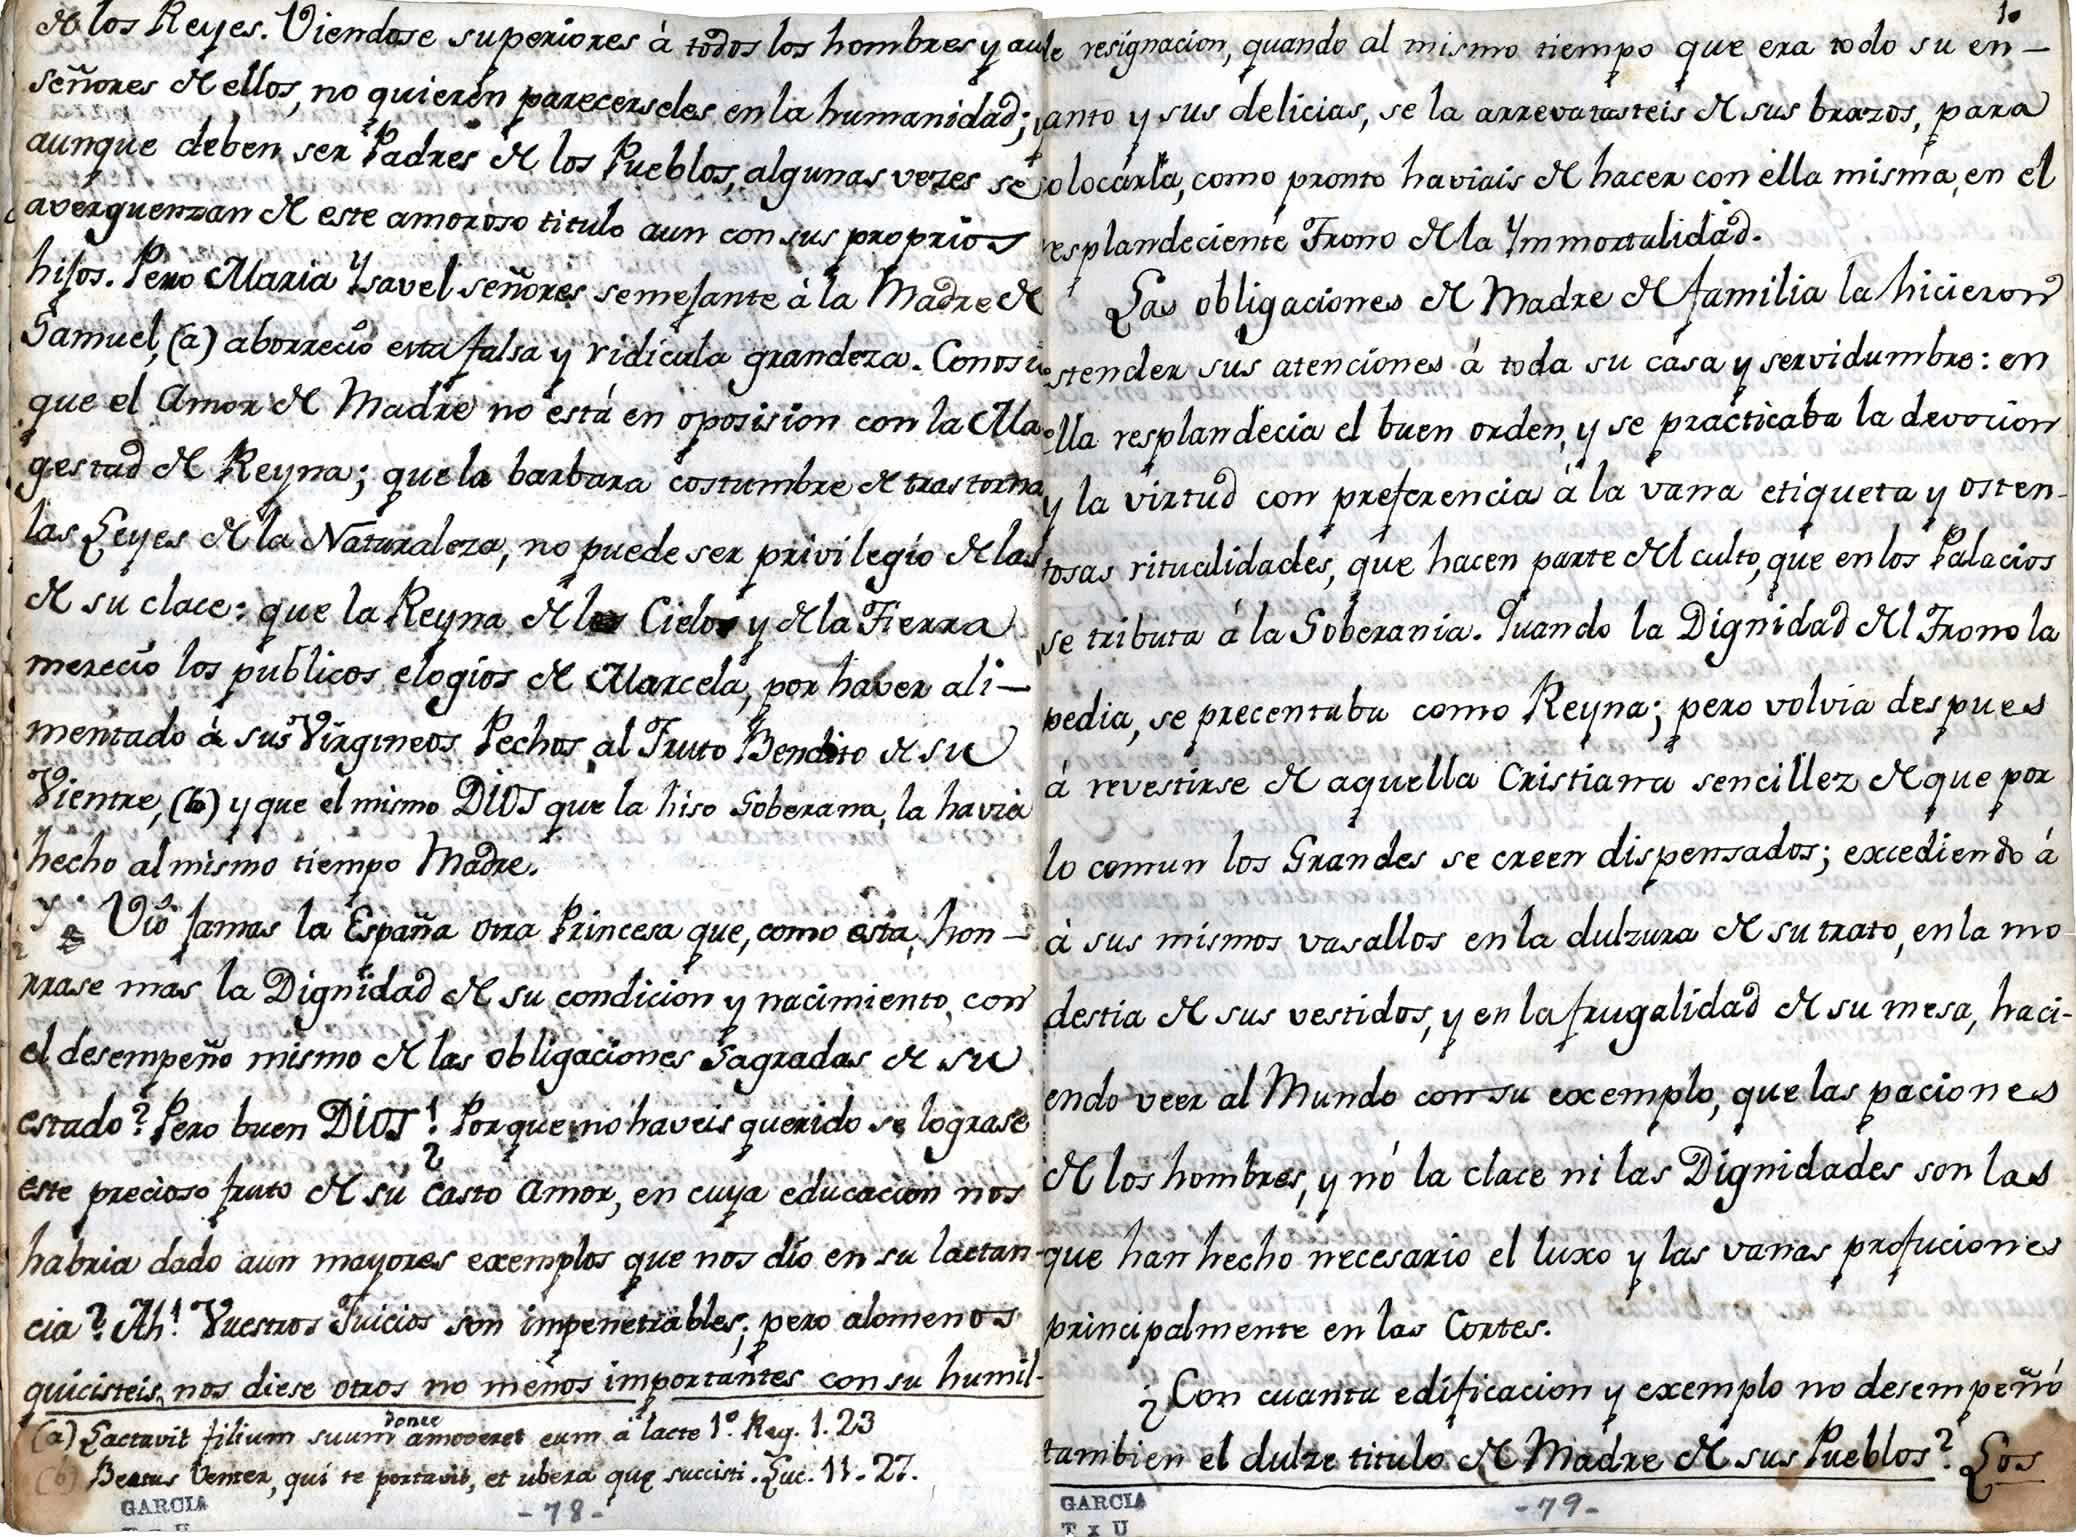 de los Reyes. Viendose superiores à todos los hombres y au
señores de ellos, no quieren parecerseles en la humanidad; y
aunque deben ser Padres de los Pueblos, algunas vezes se
averguenzan de este amoroso titulo aun con sus proprios
hijos. Pero Maria Ysavel señores semejante à la Madre de
Samuel, (a) aborrecio esta falsa y ridicula grandeza. Conosio
que el Amor de Madre no está en oposision con la Ma
gestad de Reyna; que la barbara costumbre de trastorna
las Leyes de la Naturaleza, no puede ser privilegio de las
de su clace: que la Reyna de los Cielos y de la Tierra
merecio los publicos elogios de Marcela, por haver ali—
mentado à sus Virgineos Pechos al Fruto Bendito de su
Vientre, (b) y que el mismo DIOS que la hiso Soberana, la havia
hecho al mismo tiempo Madre.
Vio jamas la España otra Princesa que, como esta, hon—
rrase mas la Dignidad de su condicion y nacimiento, con
el desempeño mismo de las obligaciones Sagradas de su
estado? Pero buen DIOS! Porque no haveis querido se lograse
este precioso fruto de su casto Amor, en cuya educacion nos
habria dado aun mayores exemplos que nos dio en su lactan-
cia? Ah! Vuestros Juicios son impenetrables; pero alomenos
quicisteis nos diese otros no menos importantes con su humil-
(a) Lactavit filium suum donec amoveret eum à lacte 1º. Reg. 1. 23
(b) Beatus Venter, qui te portavit, et ubera que succisti. Luc. 11. 27.
GARCIA
T x U
-78-
1.
de resignacion, quando al mismo tiempo que era todo su en—
canto y sus delicias, se la arrevatasteis de sus brazos, para
colocarla, como pronto haviais de hacer con ella misma, en el
resplandeciente Trono de la Ymmortalidad.
Las obligaciones de Madre de familia la hicieron
estender sus atenciones á toda su casa y servidumbre: en
ella resplandecia el buen orden, y se practicaba la devocion
y la virtud con preferencia à la vana etiqueta y osten-
tosas ritualidades, que hacen parte del culto, que en los Palacios
se tributa á la Soberania. Quando la Dignidad del Trono la
pedia, se precentaba como Reyna; pero volvia despues
à revestirse de aquella Cristiana sencillez de que por
lo comun los Grandes se creen dispensados; excediendo á
à sus mismos vasallos en la dulzura de su trato, en la mo
destia de sus vestidos, y en la frugalidad de su mesa, haci-
endo veer al Mundo con su exemplo, que las paciones
de los hombres, y nó la clace ni las Dignidades son las
que han hecho necesario el luxo y las vanas profuciones
principalmente en las Cortes.
¿Con cuanta edificacion y exemplo no desempeñó
tambien el dulze titulo de Madre de sus Pueblos? Los
GARCIA
T x U
-79-